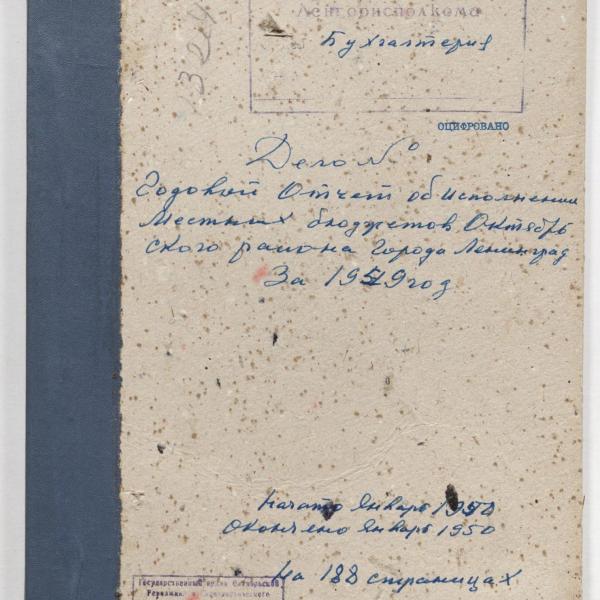 Ленгорисполкома
Бухгалтерия
1324
ОЦИФРОВАНО
Дело №
Годовой Отчет об исполнении
Местных бюджетов Октябрь
ского района Города Ленинград
За 1949 год
начато Январь 1950
окончено Январь 1950
на 188 страницах
Государственный архив Октябрьской
Революции Социалистического